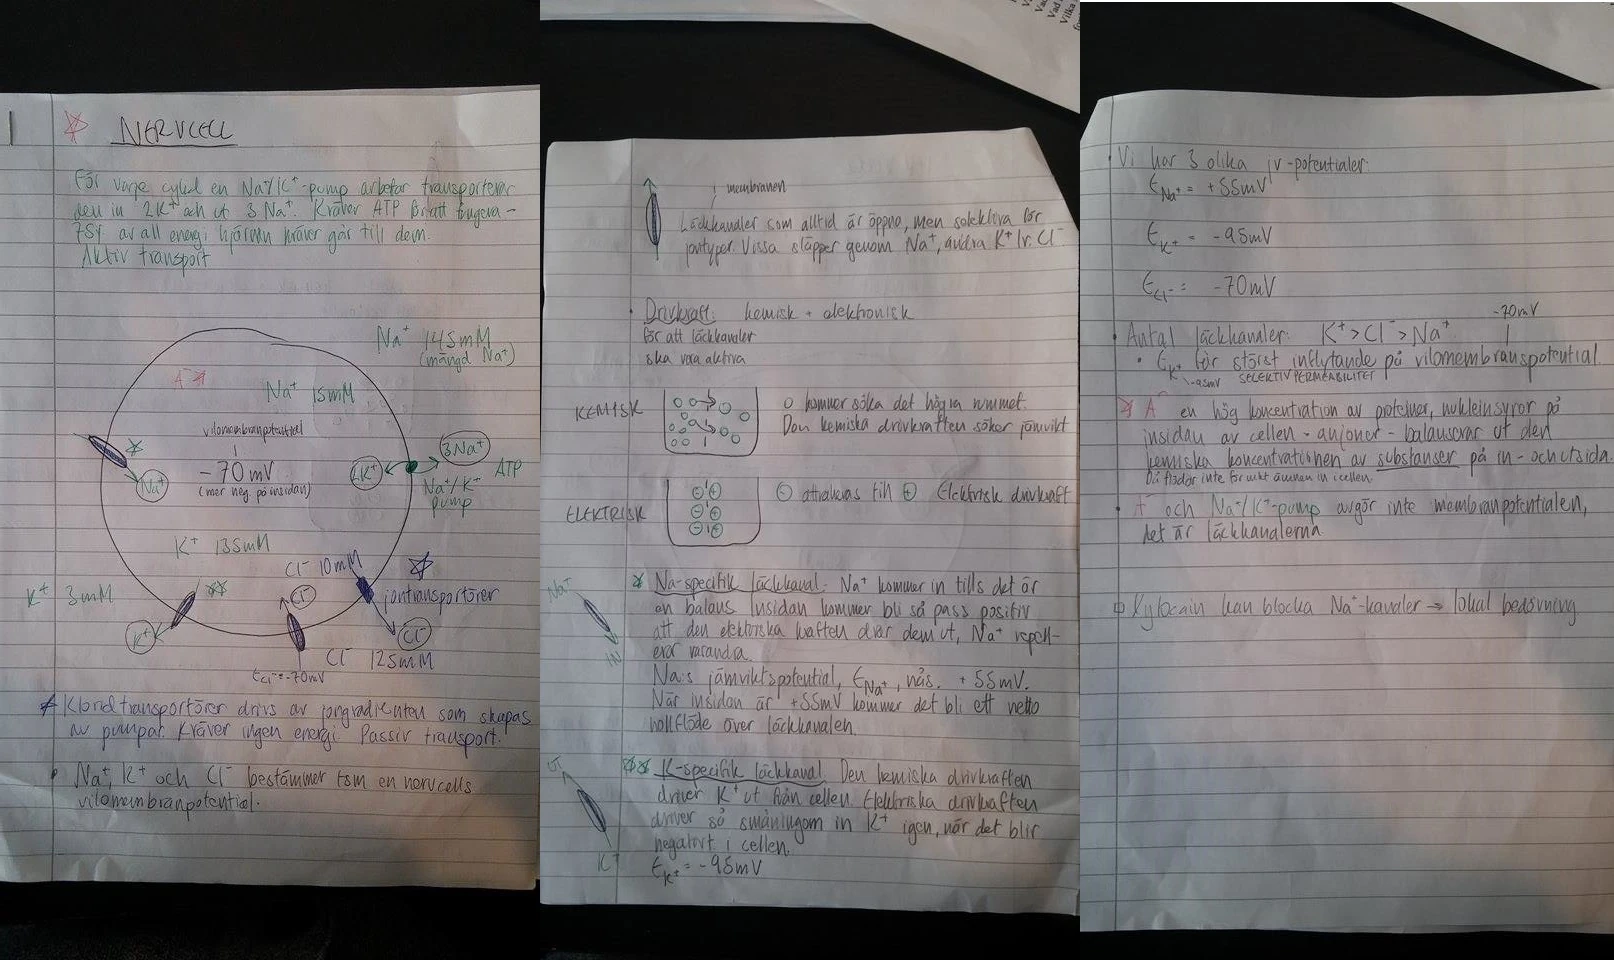 1
NERVCELL
För varje cykel en Na+/K+-pump arbetar transporterar
den in 2K+ och ut 3 Na+. Kräver ATP för att fungera -
av all energi hjärnan kräver går till dem.
Aktiv transport
Na+ 145mM
(mängd Na+)
A-
Na+ 15mM
vilomembranpotential
-70mV
(mer neg. på insidan)
Na+
2K+
3Na+
ATP
Na+/K+
pump
K+ 135mM
Cl- 10mM
K+ 3mM
Cl-
jontransportörer
K+
Cl-
Cl- 125mM
ECl- = -70mV
Kloridtransportörer drivs av jongradienten som skapas
av pumpar. Kräver ingen energi. Passiv transport.
Na+, K+ och Cl- bestämmer tsm en nervcells
vilomembranpotential.
membranen
Läckkanaler som alltid är öppna, men selektiva för
jontyper. Vissa släpper genom Na+, andra K+ Cl-
Drivkraft: kemisk + elektronisk
för att läckkanaler
ska vara aktiva
KEMISK
o kommer söka det högra rummet.
Den kemiska drivkraften söker jämvikt
ELEKTRISK
- attraheras till + Elektrisk drivkraft
Na+
IN
Na-specifik läckkanal. Na+ kommer in tills det är
en balans. Insidan kommer bli så pass positiv
att den elektriska kraften drar dem ut, Na+ repell-
erar varandra.
Na:s jämviktspotential, ENa+, nås. +55mV.
När insidan är +55mV kommer det bli ett netto
nollflöde över läckkanalen.
UT
K+
K-specifik läckkanal. Den kemiska drivkraften
driver K+ ut från cellen. Elektriska drivkraften
driver så småningom in K+ igen, när det blir
negativt i cellen.
EK+ = -95mV
Vi har 3 olika jv-potentialer:
ENa+ = +55mV
EK+ = -95mV
ECl- = -70mV
-70mV
Antal läckkanaler: K+ > Cl- > Na+
EK+ får störst inflytande på vilomembranspotential.
-95mV SELEKTIV PERMEABILITET
A- en hög koncentration av proteiner, nukleinsyror på
insidan av cellen - anjoner - balanserar ut den
kemiska koncentrationen av substanser på in- och utsida.
Då flödar inte för mkt ämnen in i cellen.
A- och Na+/K+-pump avgör inte membranpotentialen,
det är läckkanalerna.
Xylocain kan blocka Na+-kanaler → lokal bedövning